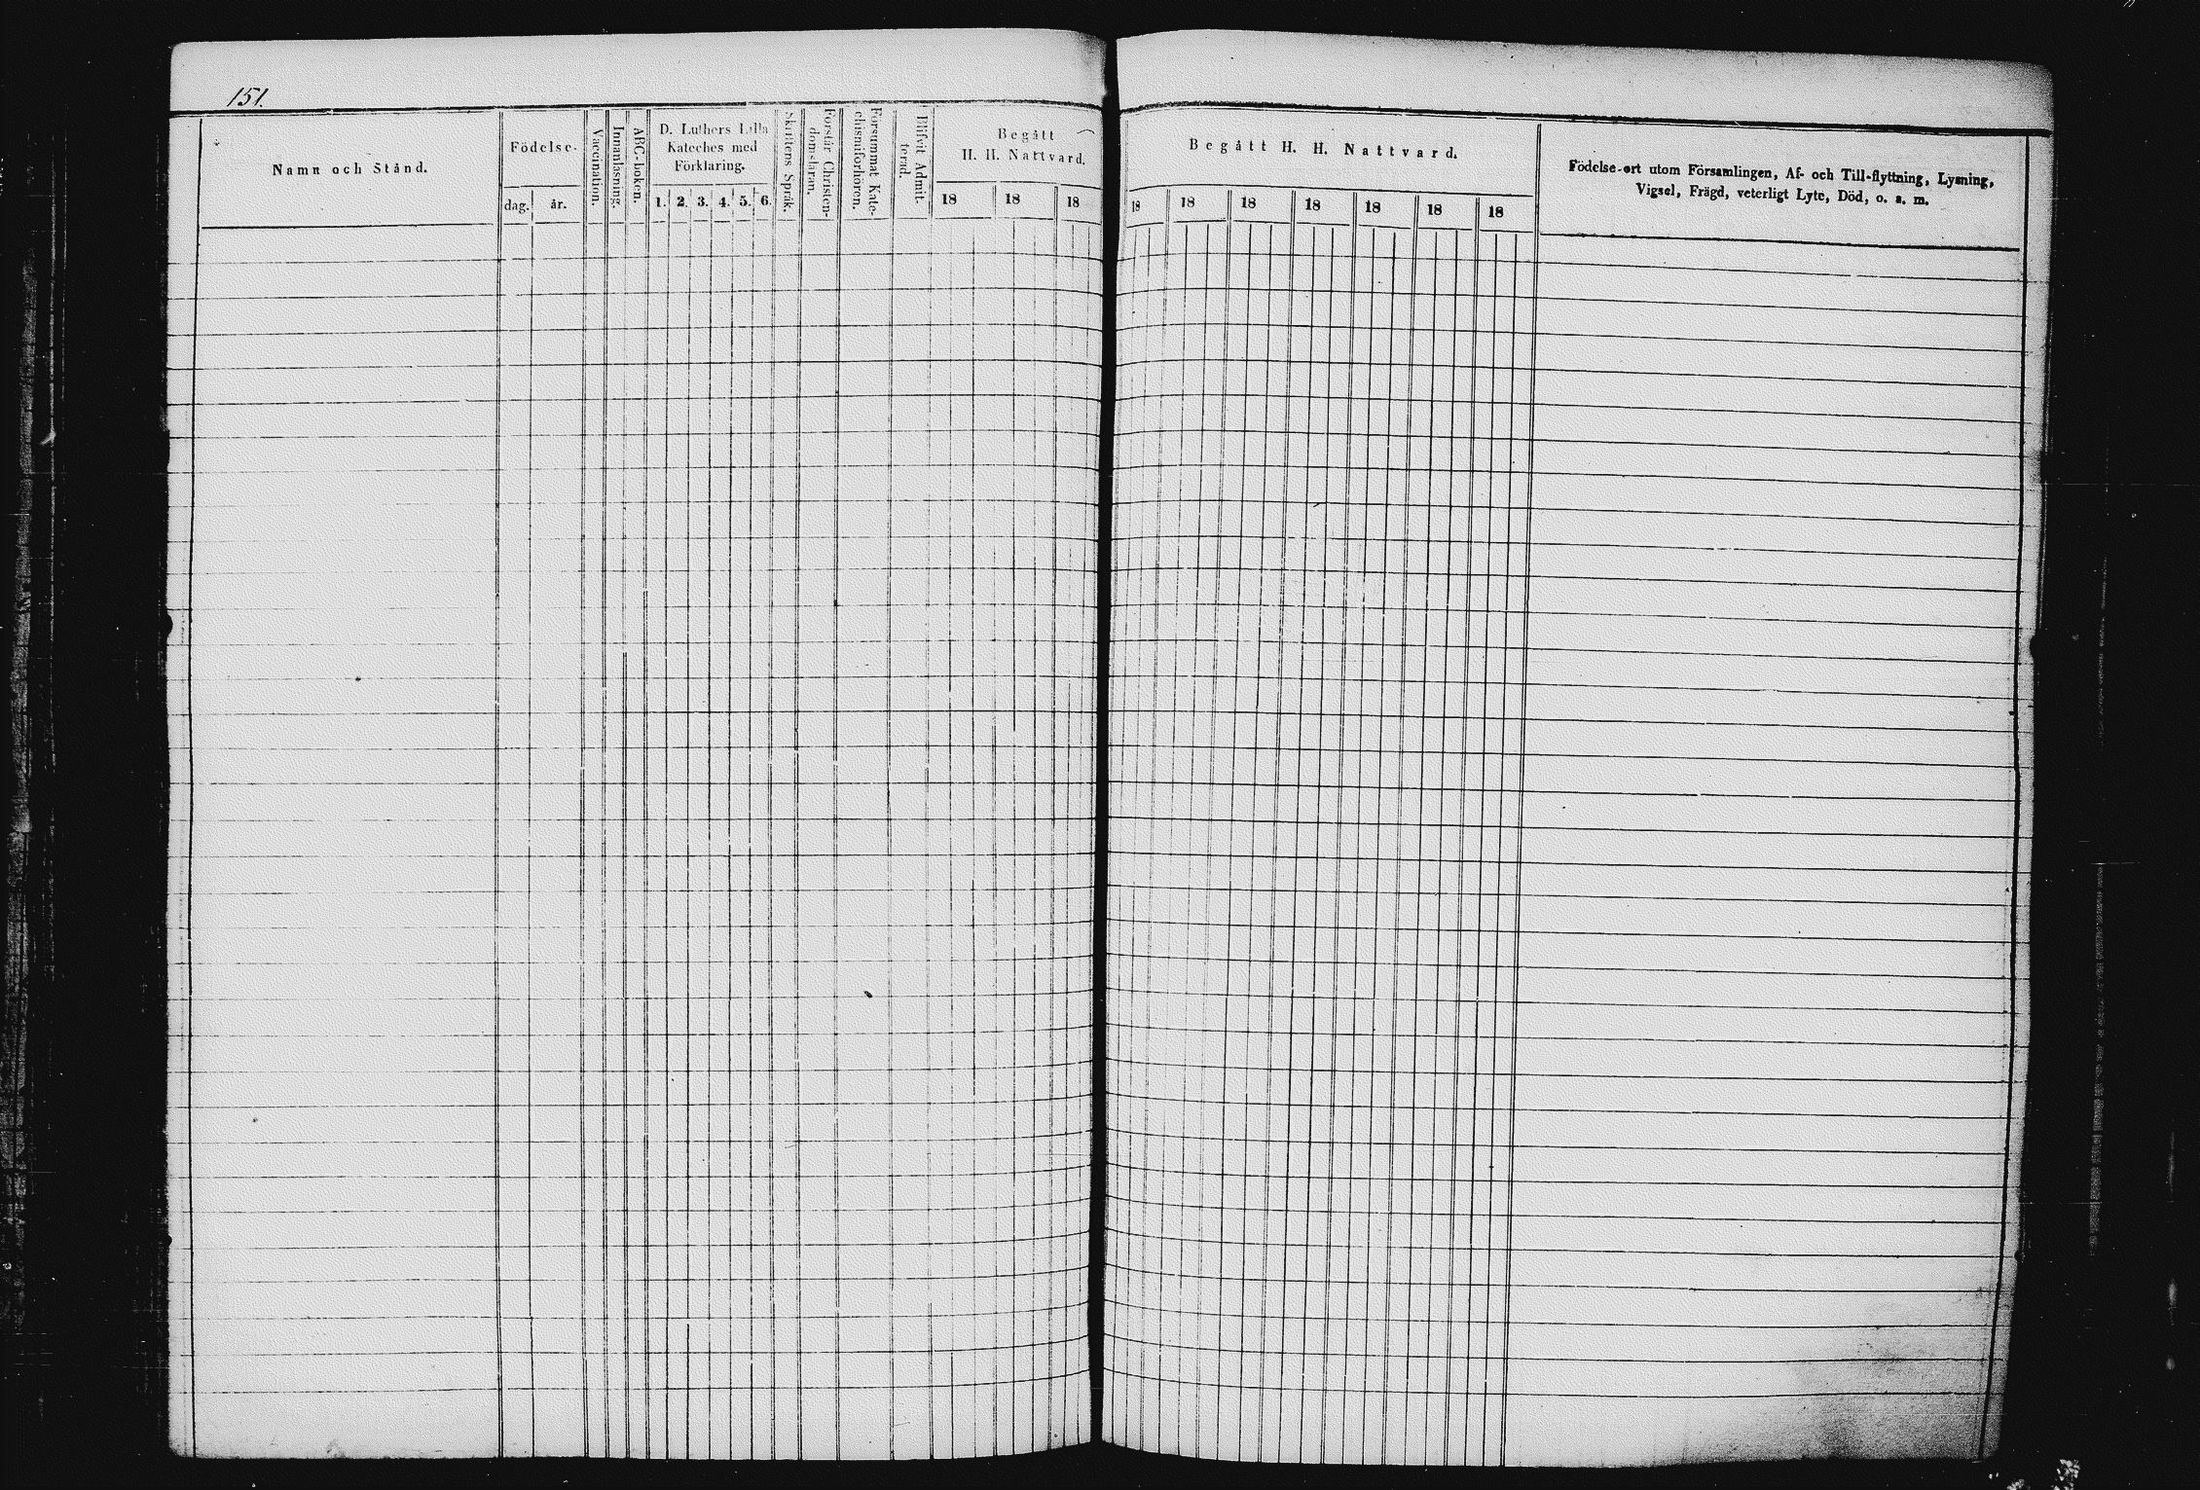 151.
Namn och Stånd.
Födelse.
dag.
år.
Vaccination.
Innanläsning.
ABC-boken.
D. Luthers Lilla
Kateches med
Förklaring.
1. 2. 3. 4. 5. 6.
Skriftens Språk.
Förstår Christen-
domsläran.
Försummat Kate-
chismiförhören.
Blifvit Admit-
terad.
Begått
H. H. Nattvard.
18 18 18
Begått H. H. Nattvard.
18 18 18 18 18 18 18
Födelse-ort utom Församlingen, Af- och Till-flyttning, Lysning,
Vigsel, Frägd, veterligt Lyte, Död, o. s. m.